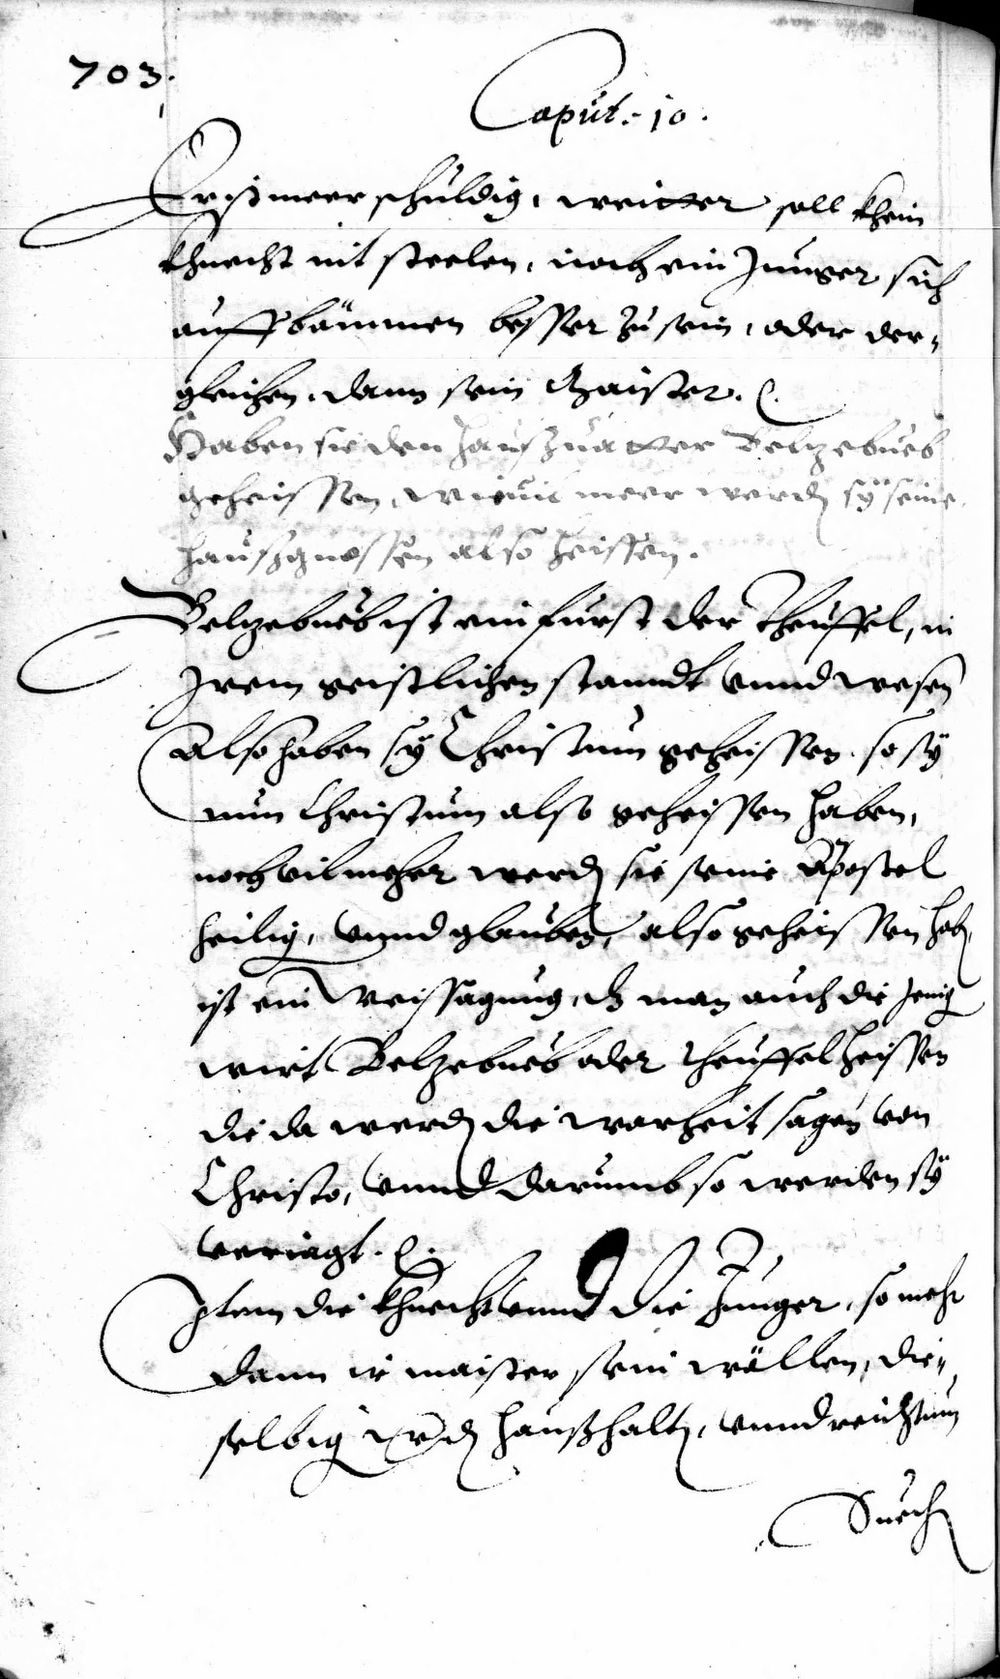 703.
Caput. 10.
Er ist meer schuldig, weitter soll khein
khnecht nit steelen, noch ein Junger sich
auffbäumen besser zu sein, oder der„
gleichen, dann sein Maister. C.
Haben sie den haußuatter Belzebueb
geheissen, wieuil meer werdn sÿ seine
haußgnossen also heissen.
Belzebueb ist ein furst der Theuffel, in
Irem geistlichen stanndt vnnd wesen
Also haben sÿ Christum geheissen. so sÿ
nun Christum also geheissen haben,
noch vilmeher werdn sie seine Apostel
heilig, vnnd glauben, also geheissen habn,
ist ein Weissagung, dz man auch die Jenig
wirt Belzebueb oder theuffel heissen
die da werdn die warheit sagen von
Christo, vnnd darumb so werden sÿ
veriagt. C.
Item die khnecht vnnd die Junger, so mehr
dann ir maister sein wöllen, die„
selbig werdn haußhaltn, vnnd reichtum
Suechn